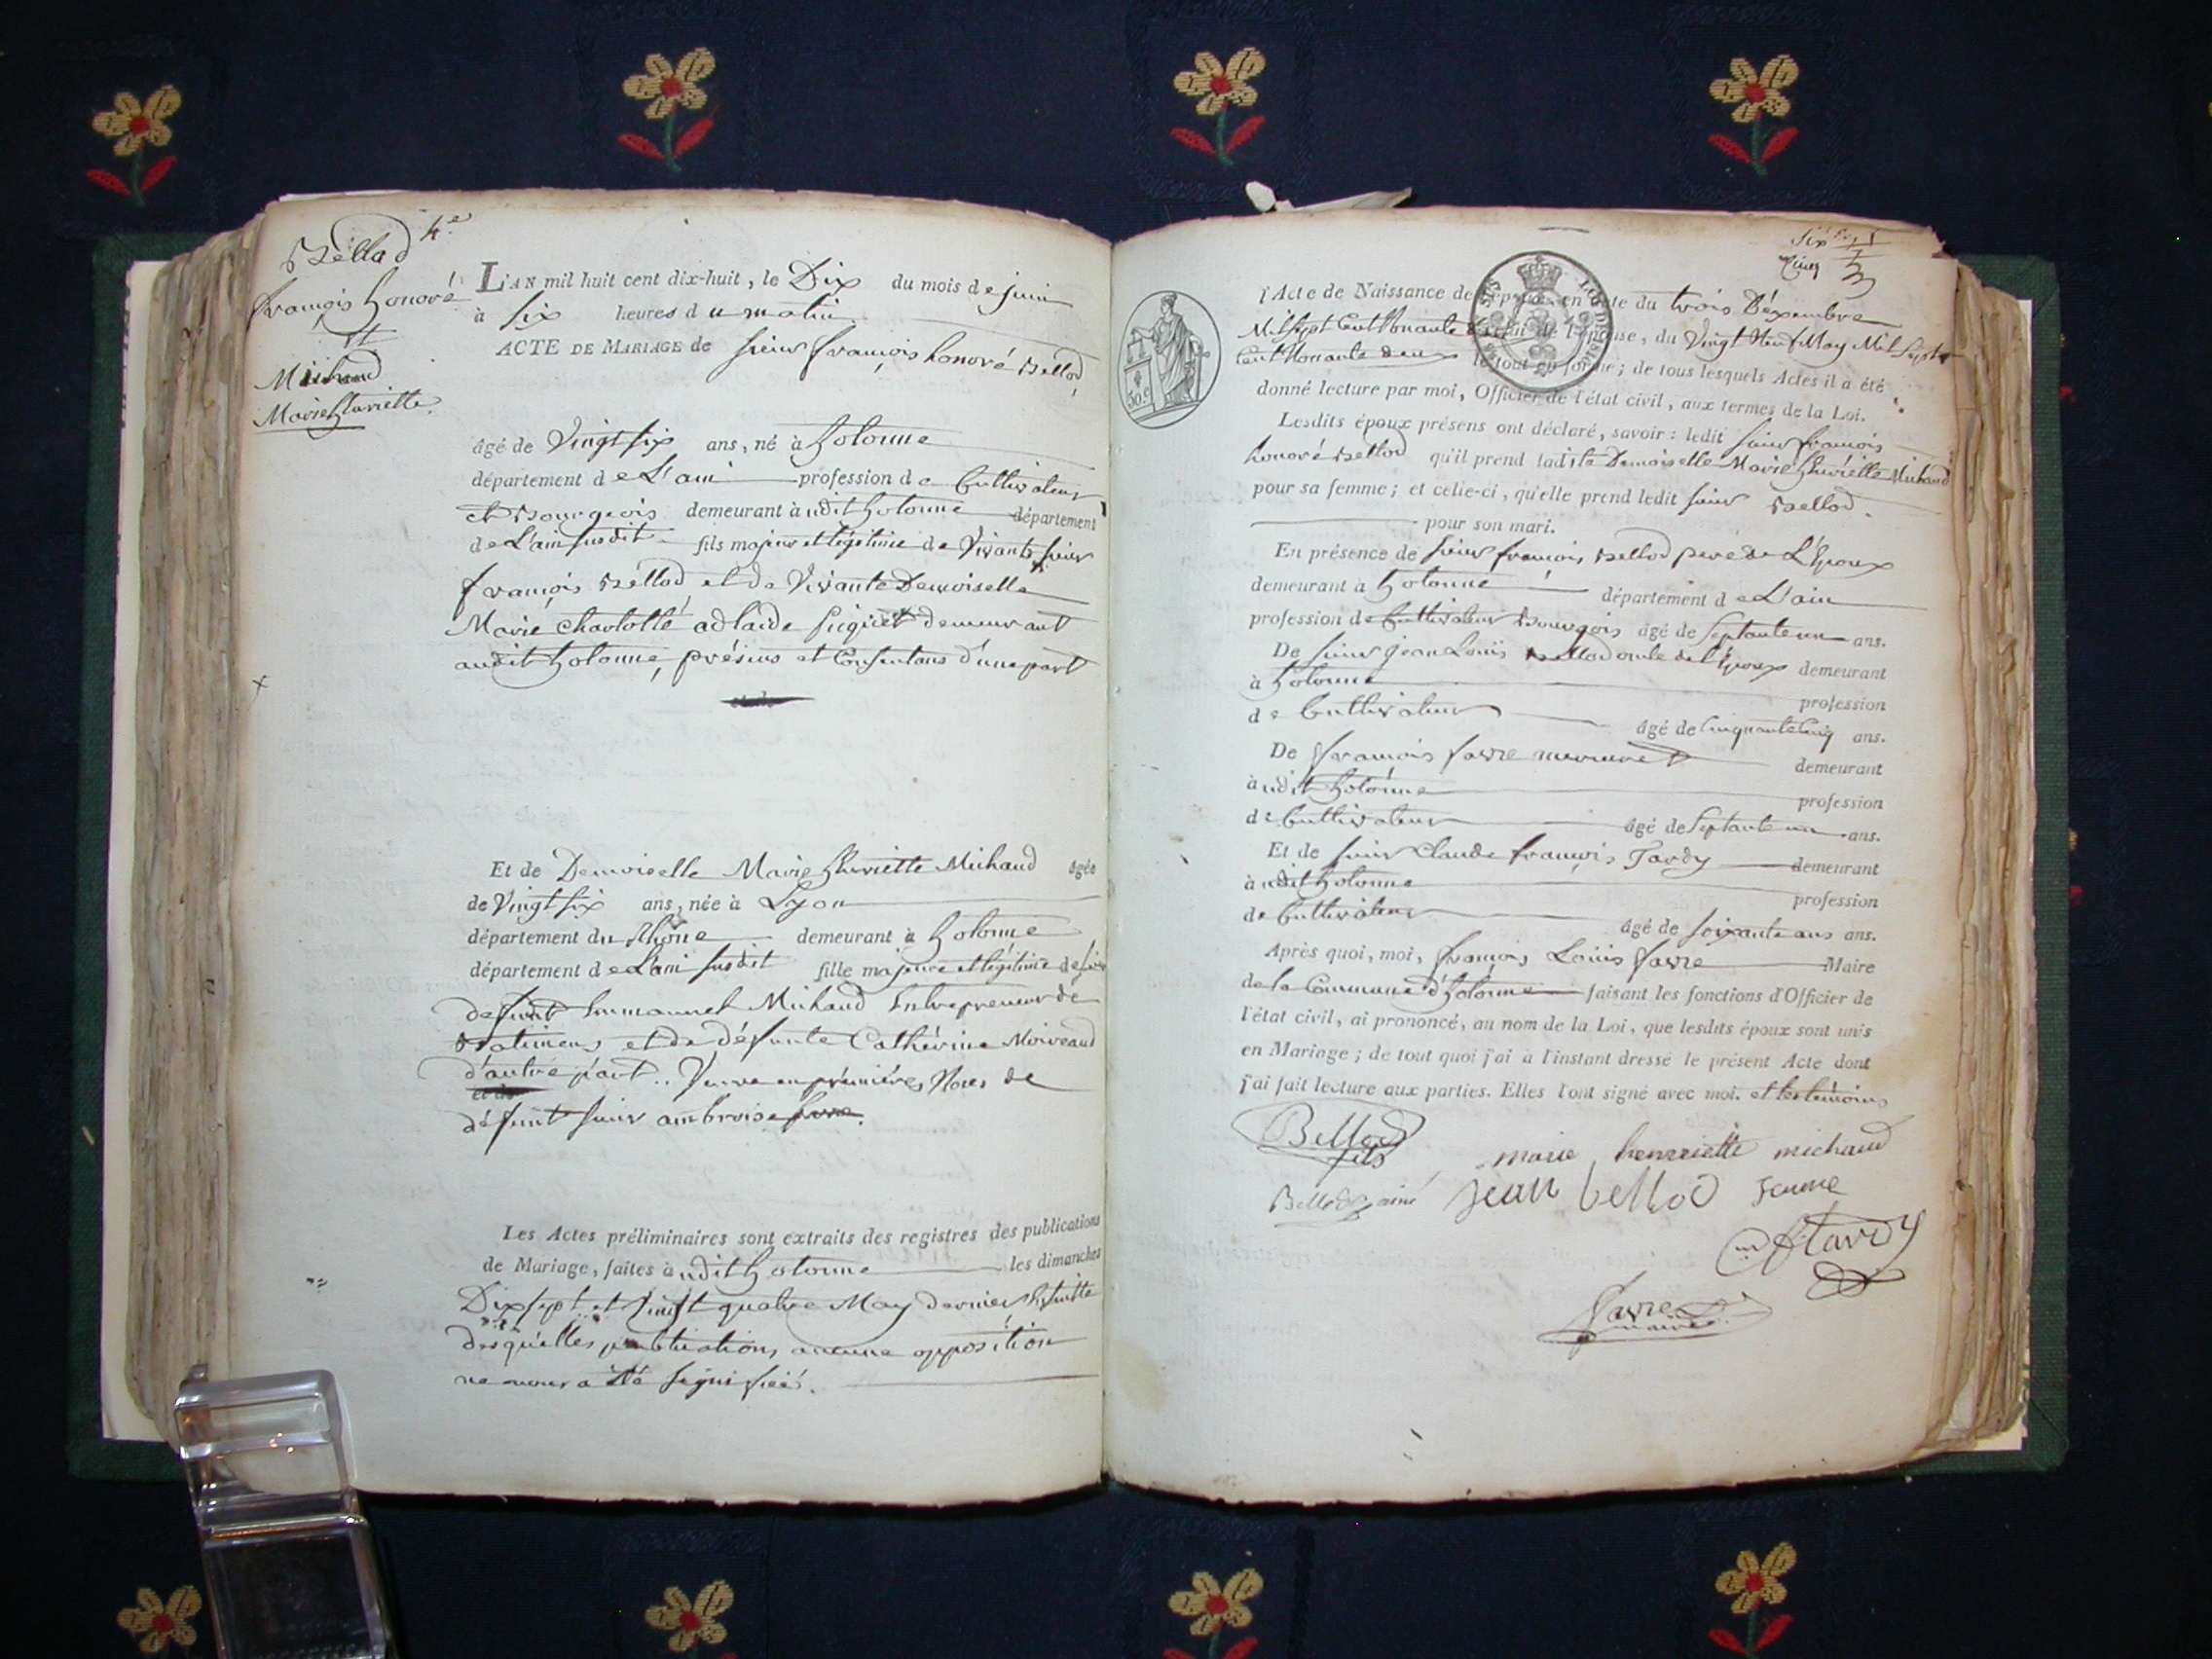 4e
Bellod
françois honoré
et
Michaud
Marie henriette.
L'AN mil huit cent dix-huit, le Dix du mois de juin
à six heures du matin
ACTE DE MARIAGE de sieur françois honoré Bellod
âgé de Vingt six ans, né à hotonne
département de L'ain profession de Cultivateur
et Bourgeois demeurant à udit hotonne département
de L'ain susdit fils majeur et légitime de Vivants sieur
françois Bellod et de Vivante Demoiselle
Marie charlotte adlaide demeurant
audit hotonne, présens et Consentans d'une part
Et de Demoiselle Marie henriette Michaud âgée
de Vingt six ans, née à Lyon
département du Rhône demeurant à hotonne
département de L'ain susdit fille majeure et légitime de
defunt Emmanuel Michaud Entrepreneur de
Batimens et de défunte Cathérine Moiveaud
d'autre part. Veuve en premières Noces de
défunt sieur ambroise favre.
Les Actes préliminaires sont extraits des registres des publications
de Mariage, faites à udit hotonne les dimanches
Dix sept et Vingt quatre May dernier
desquelles publications aucune opposition
ne nous a été signifiée.
six
cinq
50 c
l'Acte de Naissance de l'époux en date du trois Déxembre
Mil sept Cent Nonante celui de l'épouse, du Vingt Neuf May Mil Sept
Cent Nonante deux le tout en forme; de tous lesquels Actes il a été
donné lecture par moi, Officier de l'état civil, aux termes de la Loi.
Lesdits époux présens ont déclaré, savoir : ledit sieur françois
honoré Bellod qu'il prend ladite Demoiselle Marie henriette Michaud
pour sa femme; et celle-ci, qu'elle prend ledit sieur Bellod.
pour son mari.
En présence de sieur françois Bellod père de L'Epoux
demeurant à hotonne département de L'ain
profession de Cultivateur Bourgois âgé de Septante un ans.
De sieur jean Louis Bellod oncle de l'Epoux demeurant
à hotonne profession
de Cultivateur âgé de Cinquante Cinq ans.
De françois favre demeurant
à udit hotonne profession
de Cultivateur âgé de Septante un ans.
Et de sieur Claude françois Tardy demeurant
à udit hotonne profession
de Cultivateur âgé de soixante ans ans.
Après quoi, moi, françois Louis favre Maire
de la Commune d'hotonne faisant les fonctions d'Officier de
l'état civil, ai prononcé, au nom de la Loi, que lesdits époux sont unis
en Mariage; de tout quoi j'ai à l'instant dressé le présent Acte dont
j'ai fait lecture aux parties. Elles l'ont signé avec moi. et les témoins
Bellod fils
marie henriette michaud
Bellod ainé jean bellod jeune
tardy
favre
maire